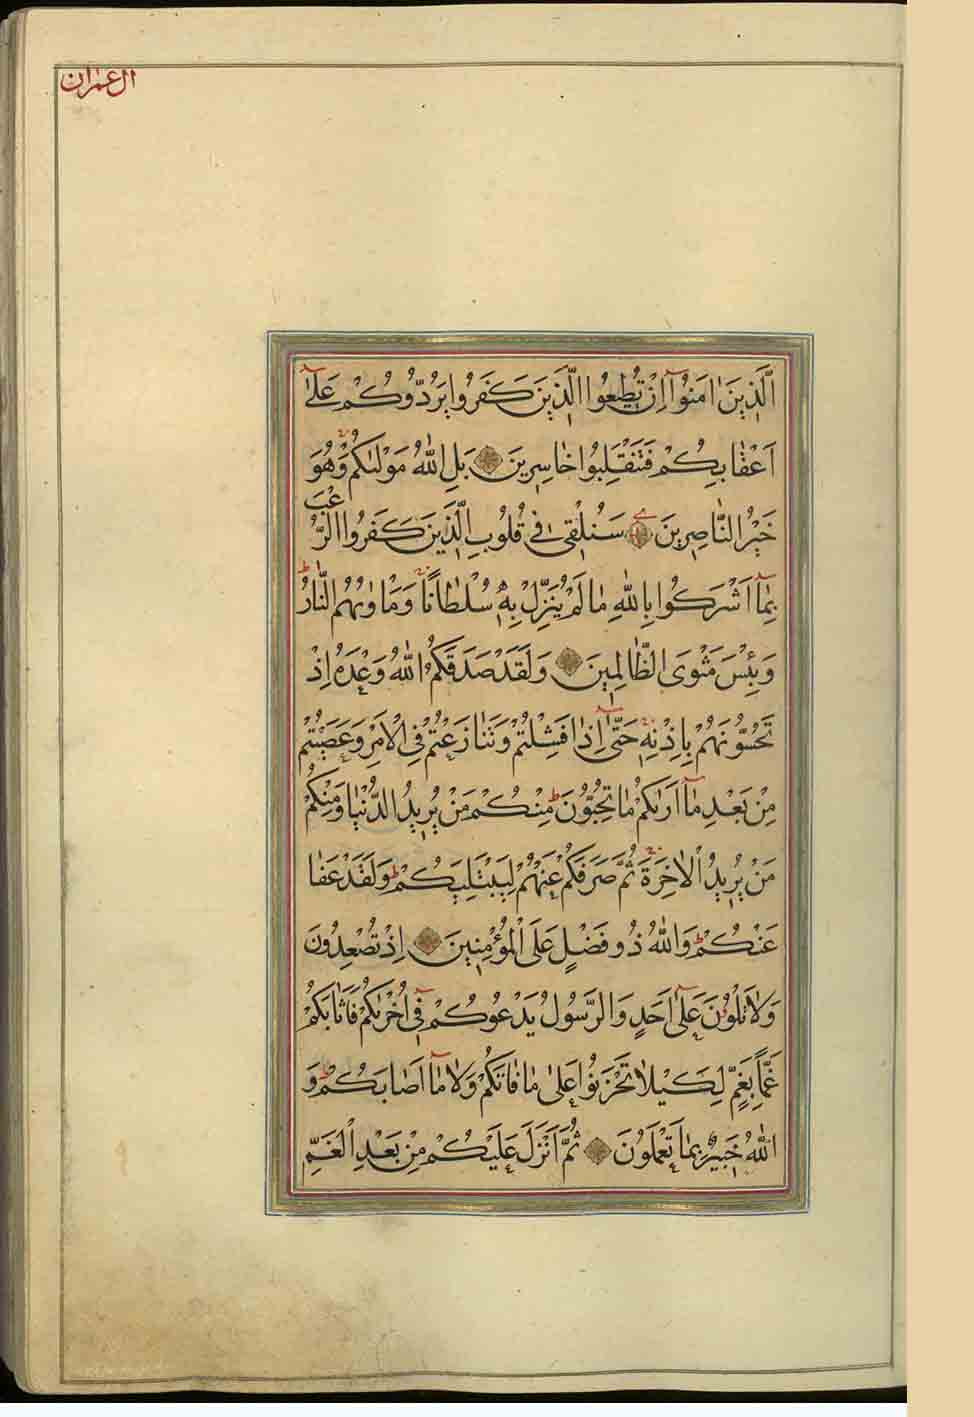 ال عمران
اَلَّذِينَ اٰمَنُوٓا اِنْ تُطِيعُوا الَّذِينَ كَفَرُوا يَرُدُّوكُمْ عَلٰٓى
اَعْقٰابِكُمْ فَتَنْقَلِبُوا خٰاسِرِينَ بَلِ اللّٰهُ مَوْلٰيكُمْ وَهُوَ
خَيْرُ النّٰاصِرِينَ سَنُلْقِى فِى قُلُوبِ الَّذِينَ كَفَرُوا الرُّعْبَ
بِمٰٓا اَشْرَكُوا بِاللّٰهِ مٰا لَمْ يُنَزِّلْ بِهِ سُلْطٰانًا وَمَاْوٰيهُمُ النّٰارُ
وَبِئْسَ مَثْوَى الظّٰالِمِينَ وَلَقَدْ صَدَقَكُمُ اللّٰهُ وَعْدَهُ اِذْ
تَحُسُّونَهُمْ بِاِذْنِهِ حَتّٰٓى اِذٰا فَشِلْتُمْ وَتَنٰازَعْتُمْ فِى الْاَمْرِ وَعَصَيْتُمْ
مِنْ بَعْدِ مٰٓا اَرٰيكُمْ مٰا تُحِبُّونَ مِنْكُمْ مَنْ يُرِيدُ الدُّنْيٰا وَمِنْكُمْ
مَنْ يُرِيدُ الْاٰخِرَةَ ثُمَّ صَرَفَكُمْ عَنْهُمْ لِيَبْتَلِيَكُمْ وَلَقَدْ عَفٰا
عَنْكُمْ وَاللّٰهُ ذُو فَضْلٍ عَلَى الْمُؤْمِنِينَ اِذْ تُصْعِدُونَ
وَلٰا تَلْوُنَ عَلٰٓى اَحَدٍ وَالرَّسُولُ يَدْعُوكُمْ فِىٓ اُخْرٰيكُمْ فَاَثٰابَكُمْ
غَمًّا بِغَمٍّ لِكَيْلٰا تَحْزَنُوا عَلٰى مٰا فٰاتَكُمْ وَلٰا مٰٓا اَصٰابَكُمْ وَ
اللّٰهُ خَبِيرٌ بِمٰا تَعْمَلُونَ ثُمَّ اَنْزَلَ عَلَيْكُمْ مِنْ بَعْدِ الْغَمِّ